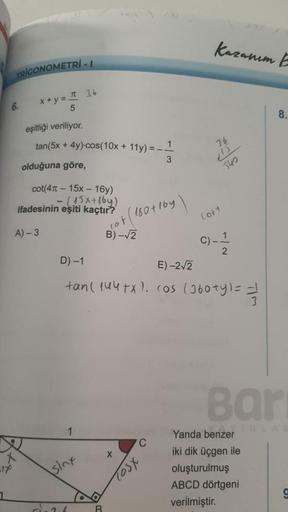 Kazanım
TRİGONOMETRİ - I
8.
6.
x + y = π/5
36
eşitliği veriliyor.
tan(5x + 4y)·cos(10x + 11y) = - 1/3
olduğuna göre,
cot(4π – 15x – 16y)
- (15x+16y)
ifadesinin eşiti kaçtır?
cot (180+16y)
A) – 3
B) –√2
C) – 1/2
D) –1
E) –2√2
tan(144+x). cos (360+y) = -1/3
1
C
x
sinx
cosx
B
Yanda benzer
iki dik üçgen ile
oluşturulmuş
ABCD dörtgeni
verilmiştir.